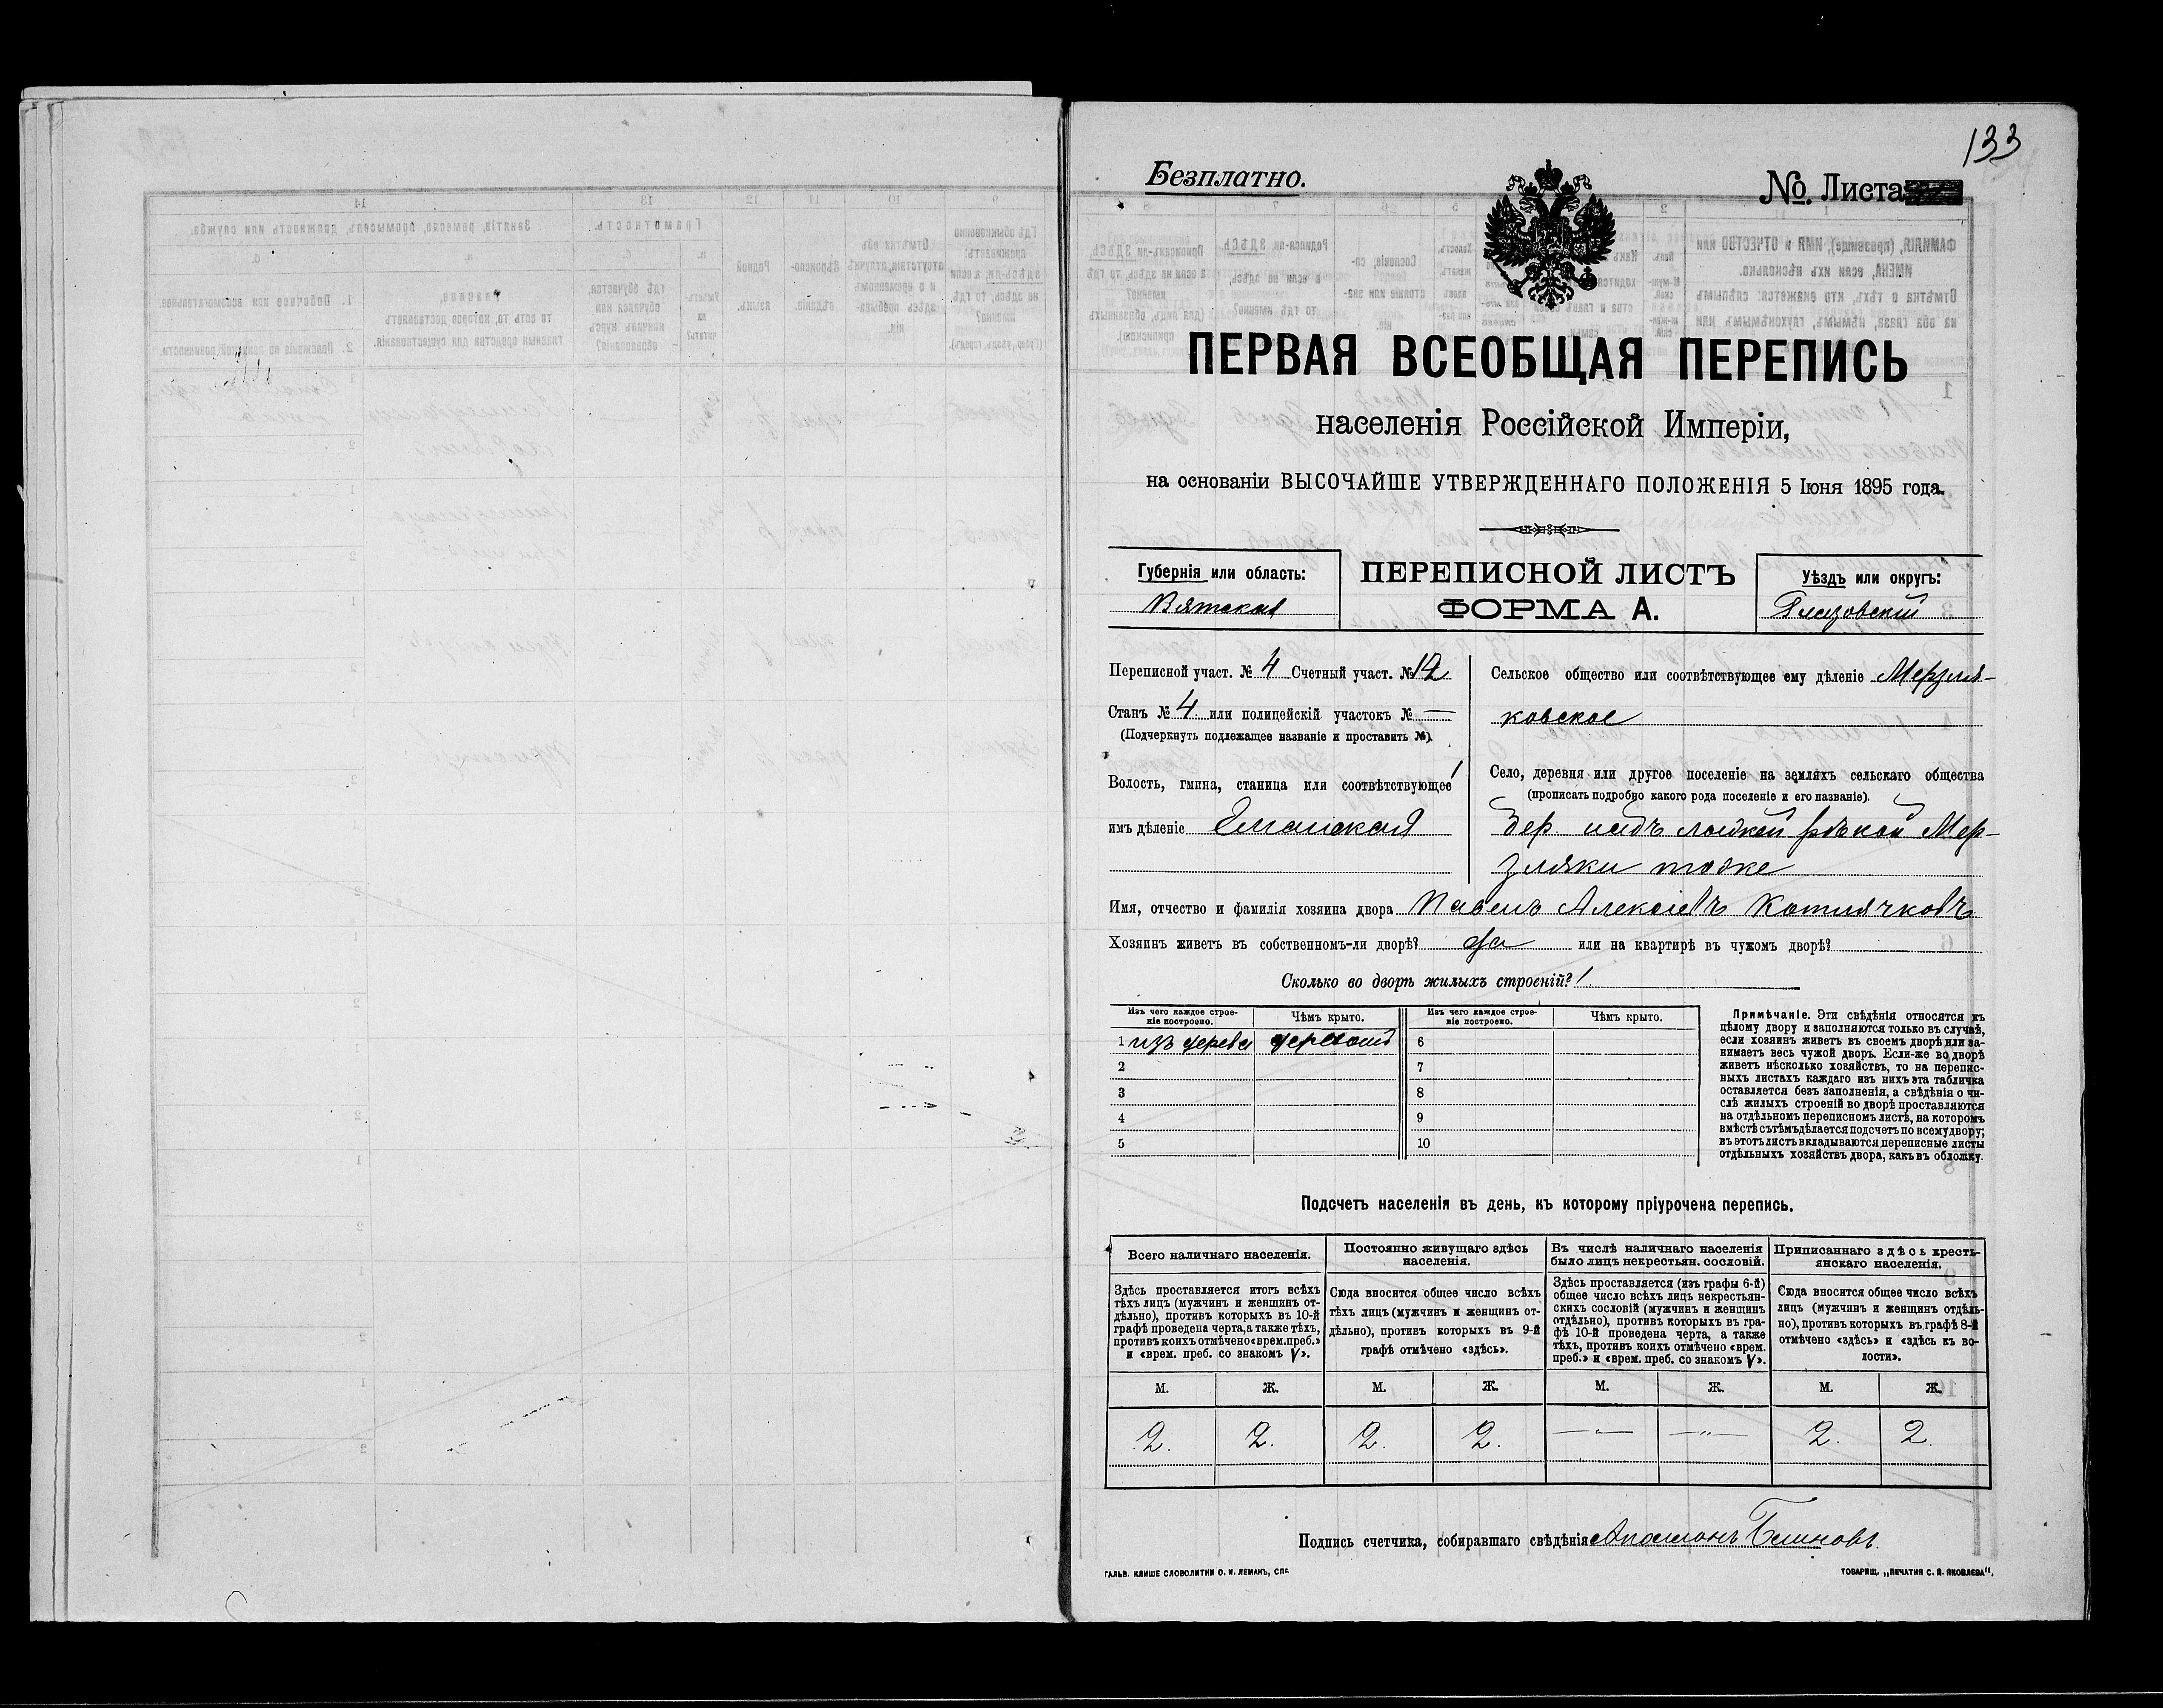 133
Безплатно.
№. Листа
ПЕРВАЯ ВСЕОБЩАЯ ПЕРЕПИСЬ
населенія Россійской Имперіи,
на основаніи ВЫСОЧАЙШЕ УТВЕРЖДЕННАГО ПОЛОЖЕНІЯ 5 Іюня 1895 года.
Губернія или область:
Вятская
ПЕРЕПИСНОЙ ЛИСТЪ
ФОРМА А.
Уѣздъ или округъ:
Глазовскій
Переписной участ. № 4 Счетный участ. № 12
Станъ № 4 или полицейскій участокъ № —
(Подчеркнуть подлежащее названіе и проставить №).
Волость, гмина, станица или соотвѣтствующее
имъ дѣленіе
Сельское общество или соотвѣтствующее ему дѣленіе Мерзля-
ковское
Село, деревня или другое поселеніе на земляхъ сельскаго общества
(прописать подробно какого рода поселеніе и его названіе).
Дер. надъ рѣчкой Мер-
зляки тоже
Имя, отчество и фамилія хозяина двора Павелъ Алексѣевъ Котлячковъ
Хозяинъ живетъ въ собственномъ-ли дворѣ? да или на квартирѣ въ чужомъ дворѣ?
Сколько во дворѣ жилыхъ строеній? 1
Изъ чего каждое строе-
ніе построено.
Чѣмъ крыто.
Изъ чего каждое строе-
ніе построено.
Чѣмъ крыто.
1 изъ дерева 6
2 7
3 8
4 9
5 10
Примѣчаніе. Эти свѣдѣнія относятся къ
цѣлому двору и заполняются только въ случаѣ,
если хозяинъ живетъ въ своемъ дворѣ или за-
нимаетъ весь чужой дворъ. Если-же во дворѣ
живетъ нѣсколько хозяйствъ, то на перепис-
ныхъ листахъ каждаго изъ нихъ эта табличка
оставляется безъ заполненія, а свѣдѣнія о чи-
слѣ жилыхъ строеній во дворѣ проставляются
на отдѣльномъ переписномъ листѣ, на которомъ
вмѣстѣ съ тѣмъ дѣлается подсчетъ по всему двору;
въ этотъ листъ вкладываются переписные листы
отдѣльныхъ хозяйствъ двора, какъ въ обложку.
Подсчетъ населенія въ день, къ которому пріурочена перепись.
Всего наличнаго населенія.
Постоянно живущаго здѣсь
населенія.
Въ числѣ наличнаго населенія
было лицъ некрестьян. сословій.
Приписаннаго здѣсь кресть-
янскаго населенія.
Здѣсь проставляется итогъ всѣхъ
тѣхъ лицъ (мужчинъ и женщинъ от-
дѣльно), противъ которыхъ въ 10-й
графѣ проведена черта, а также тѣхъ,
противъ коихъ отмѣчено «врем. преб.»
и «врем. преб. со знакомъ V».
Сюда вносится общее число всѣхъ
тѣхъ лицъ (мужчинъ и женщинъ от-
дѣльно), противъ которыхъ въ 9-й
графѣ отмѣчено «здѣсь».
Здѣсь проставляется (изъ графы 6-й)
общее число всѣхъ лицъ некрестьян-
скихъ сословій (мужчинъ и женщинъ
отдѣльно), противъ которыхъ въ гра-
фѣ 10-й проведена черта, а также
тѣхъ, противъ коихъ отмѣчено «врем.
преб.» и «врем. преб. со знакомъ V».
Сюда вносится общее число всѣхъ
лицъ (мужчинъ и женщинъ отдѣль-
но), противъ которыхъ въ графѣ 8-й
отмѣчено «здѣсь» и «здѣсь къ во-
лости».
М. Ж. М. Ж. М. Ж. М. Ж.
2. 2. 2. 2. —"— —"— 2. 2.
Подпись счетчика, собиравшаго свѣдѣнія
ГАЛЬВ. КЛИШЕ СЛОВОЛИТНИ О. И. ЛЕМАНЪ, СПБ
ТОВАРИЩ. „ПЕЧАТНЯ С. П. ЯКОВЛЕВА“.